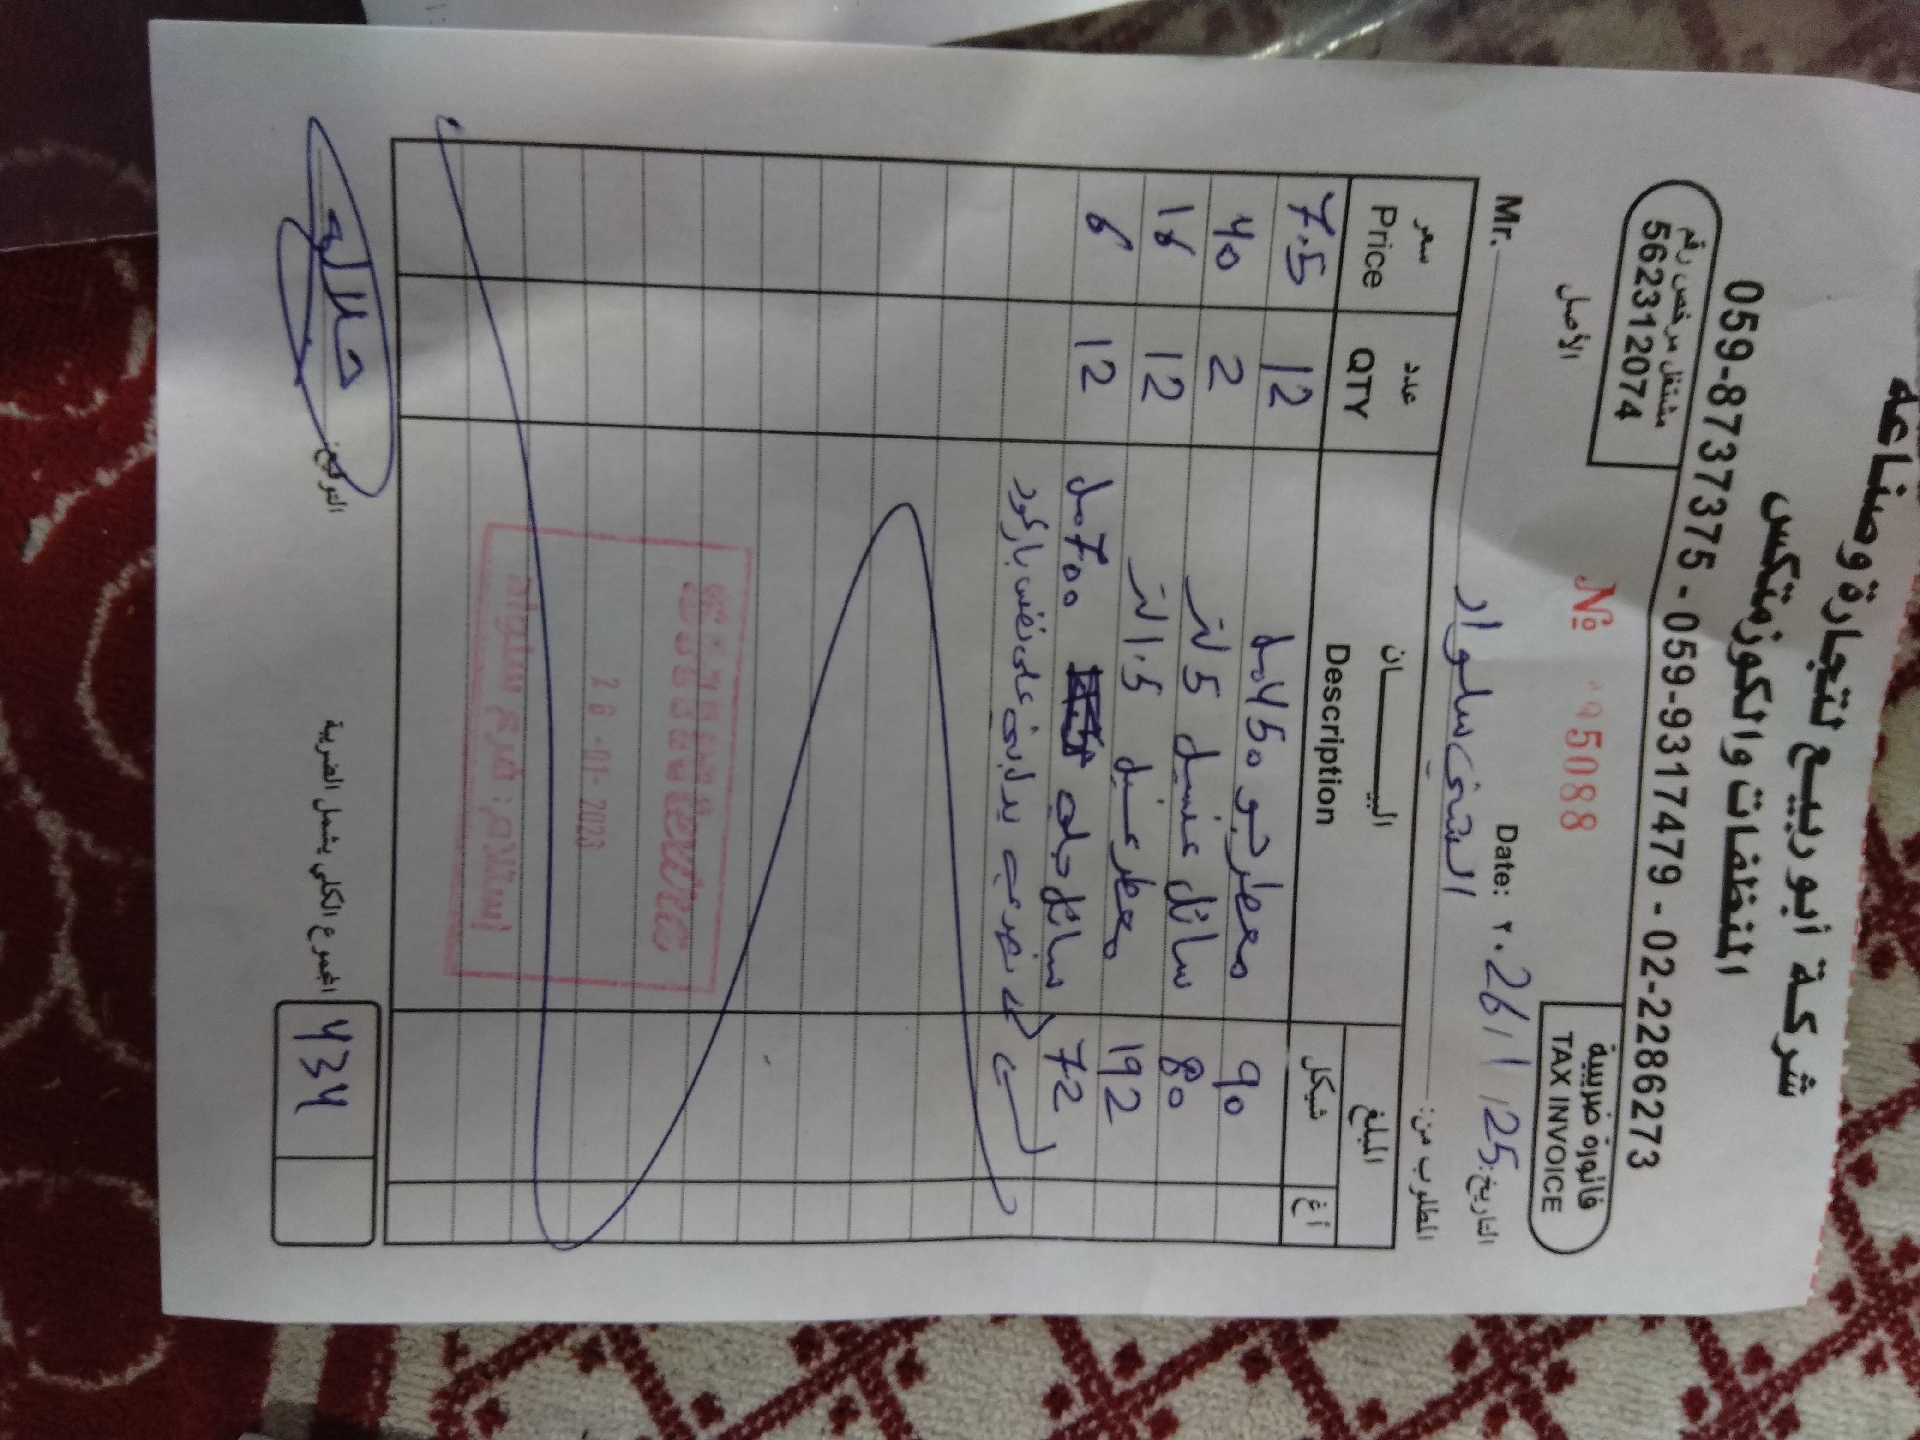 شركة أبو ربيع لتجارة وصناعة
المنظفات والكوزمتكس
059-8737375 - 059-9317479 - 02-2286273
مشتغل مرخص رقم
562312074
فاتورة ضريبية
TAX INVOICE
الأصل
№ 5088
Date: ٢٠26/1/25 التاريخ:
Mr. الشني سلوار المطلوب من:
سعر Price عدد QTY البيــــــان Description المبلغ
شيكل أغ
7.5 12 معطر جو 450 مل 90
40 2 سائل غسيل 5 لتر 80
16 12 معطر غسيل 1.5 لتر 192
6 12 سائل جلي 700 مل 72
على نفس باركود
26-01-2023
استلام: فرع سلواد
التوقيع:
المجموع الكلي يشمل الضريبة 434